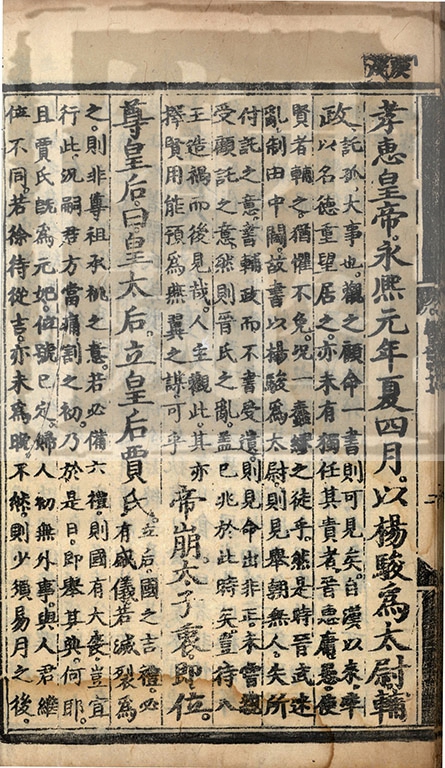 孝惠皇帝。永熙元年夏四月。以楊駿爲太尉。輔
政。
託孤。大事也。觀之顧命一書則可見矣。自漢以來。率
以名德重望居之。亦未有獨任其貴者。晉惠庸愚。使
賢者輔之。猶懼不免。况一蠢繆之徒乎。然是時晉武迷
亂。制由中閫。故書以楊駿爲太尉。則見舉朝無人。失所
付託之意。書輔政而不書受遺。則見命出非正。未嘗親
受顧託之意。然則晉氏之亂。蓋已兆於此時矣。豈待八
王造禍而後見哉。人主觀此。其亦
擇賢用能。預爲燕翼之謀可乎
帝崩。太子衷即位。
尊皇后。曰皇太后。立皇后賈氏。
立后。國之吉禮。必
有威儀。若滅裂爲
之。則非尊祖承祧之意。若必備六禮。則國有大喪。豈宜
行此。况嗣君方當痛割之初。乃於是日。即舉其典。何耶。
且賈氏旣爲元妃。位號已定。婦人初無外事。與人君繼
位不同。若徐待從吉。亦未爲晚。不然。則少須易月之後。